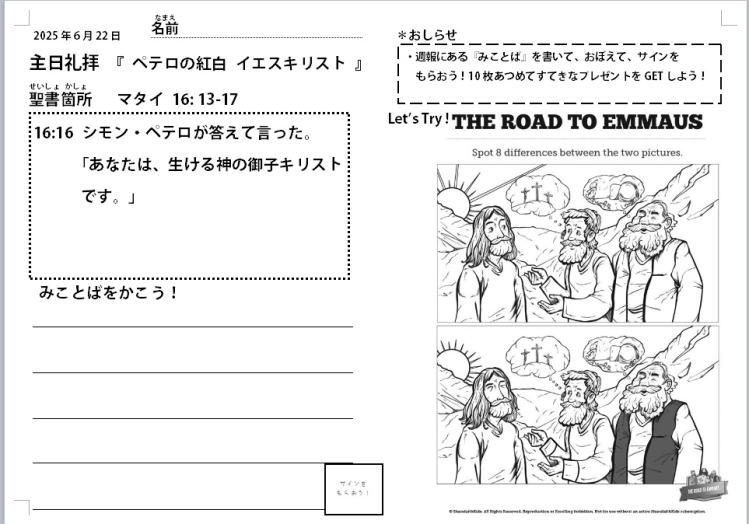 2025年6月22日
なまえ
名前
主日礼拝 『 ペテロの紅白 イエスキリスト 』
せいしょ かしょ
聖書箇所 マタイ 16: 13-17
16:16 シモン・ペテロが答えて言った。
「あなたは、生ける神の御子キリスト
です。」
みことばをかこう！
サインを
もらおう！
＊おしらせ
・週報にある『みことば』を書いて、おぼえて、サインを
もらおう！10枚あつめてすてきなプレゼントをGETしよう！
Let's Try! THE ROAD TO EMMAUS
Spot 8 differences between the two pictures.
THE ROAD TO EMMAUS
© Sharefaith Kids. All Rights Reserved. Reproduction or Reselling forbidden. Not for use without an active Sharefaith Kids subscription.